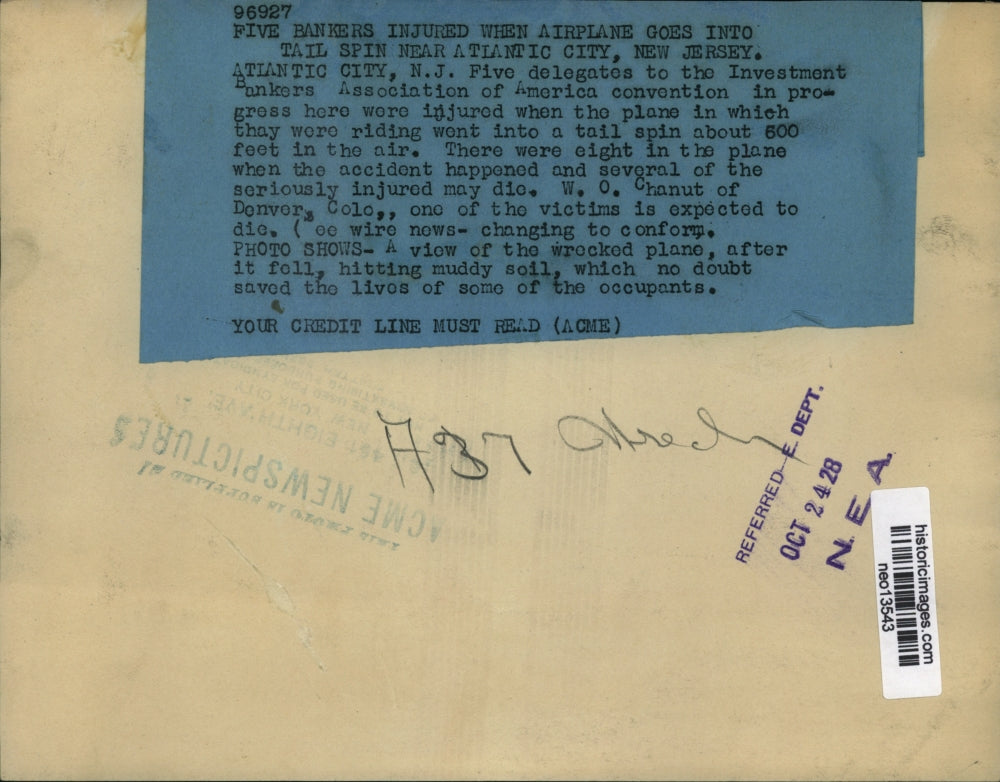 96927
FIVE BANKERS INJURED WHEN AIRPLANE GOES INTO
TAIL SPIN NEAR ATLANTIC CITY, NEW JERSEY.
ATLANTIC CITY, N.J. Five delegates to the Investment
Bankers Association of America convention in pro-
gress here were injured when the plane in which
thay were riding went into a tail spin about 600
feet in the air. There were eight in the plane
when the accident happened and several of the
seriously injured may die. W. O. Chanut of
Denver, Colo,, one of the victims is expected to
die. ( ee wire news- changing to conform.
PHOTO SHOWS- A view of the wrecked plane, after
it fell, hitting muddy soil, which no doubt
saved the lives of some of the occupants.
YOUR CREDIT LINE MUST READ (ACME)
ACME NEWSPICTURES
461 EIGHTH AVE.
NEW YORK CITY
A37
REFERRED E. DEPT.
OCT 24 28
N. E. A.
historicimages.com
neo13543